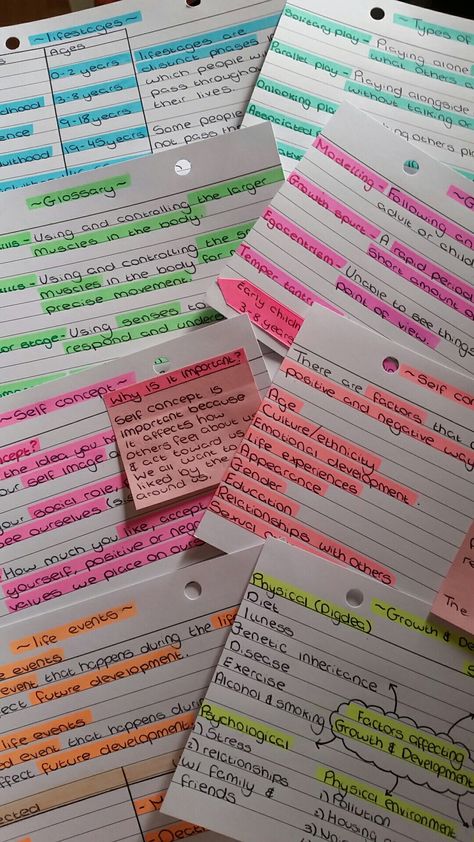 ~lifestages~
Ages
0-2 years
3-8 years
9-18years
19-45years
lifestages are
distinct phases
which people wi
pass through
their lives.
Some people
not pass the
~Types of
Solitary play - Playing alone
what others
Parallel play - Playing alongside
without talking o
Onlooking play
Associated
others pl
~Glossary~
Using and controlling the larger
muscles in the body
Using and controlling the s
muscles in the body for
precise movement.
stage - Using senses to
respond and unders
Modelling - Following a
adult or child
Growth spurt - A rapid period
short amount o
Egocentrism - Unable to see things
point of view.
Temper tantr
Early childh
3-8 years
~Self concept~
cept?
the idea you h
our self image a
your social role
see ourselves (s.
How much you like, accept
yourself, positive or nega
values we place on ours
Why is it important?
Self concept is
important because
it affects how
others feel about
& act toward us
we all want to
liked by the
around us
~Self co
There are factors that
positive and negative way
Age
Culture/ethnicity
Emotional development
Life experiences
Appearance
Gender
Education
Relationships with Others
Sexual
The
~life events~
e events
event that happens during the li
ect future development.
life events
ed event that happens during
ffect future development.
ected
Physical (Pigdea)
Diet
Illness
Genetic inheritance
Disease
Exercise
Alcohol & smoking
Psychological
1) Stress
2) relationships
w/ family &
friends
~Growth & De
Factors affecting
Growth & Development
Physical environment
1) Pollution
2) Housing